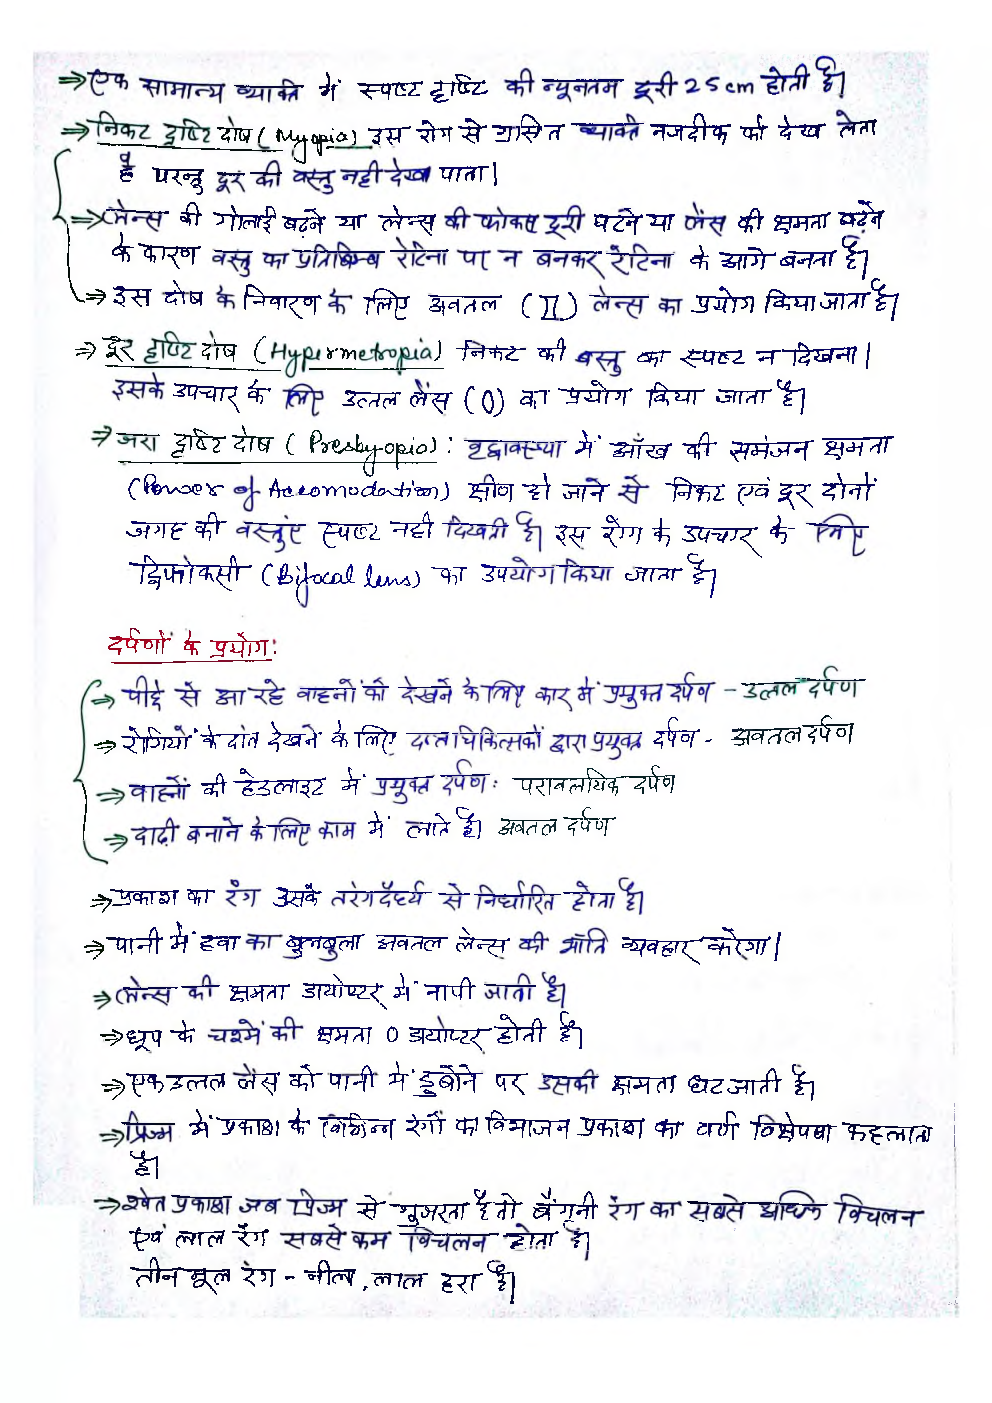 ⇒ एक सामान्य व्यक्ति में स्पष्ट दृष्टि की न्यूनतम दूरी 25 cm होती है।
⇒ निकट दृष्टि दोष (Myopia) इस रोग से ग्रसित व्यक्ति नजदीक को देख लेता
है परन्तु दूर की वस्तु नही देख पाता।
⇒ लेन्स की गोलाई बढ़ने या लेन्स की फोकस दूरी घटने या लेंस की क्षमता बढ़ने
के कारण वस्तु का प्रतिबिम्ब रेटिना पर न बनकर रेटिना के आगे बनता है।
⇒ इस दोष के निवारण के लिए अवतल (II) लेन्स का प्रयोग किया जाता है।
⇒ दूर दृष्टि दोष (Hypermetropia) निकट की वस्तु का स्पष्ट न दिखना।
इसके उपचार के लिए उत्तल लेंस (0) का प्रयोग किया जाता है।
⇒ जरा दृष्टि दोष (Presbyopia) : वृद्धावस्था में आँख की समंजन क्षमता
(Power of Accomodation) क्षीण हो जाने से निकट एवं दूर दोनों
जगह की वस्तुएं स्पष्ट नही दिखती है। इस रोग के उपचार के लिए
द्विफोकसी (Bifocal lens) का उपयोग किया जाता है।
दर्पणों के प्रयोग:
⇒ पीछे से आ रहे वाहनों को देखने के लिए कार में प्रयुक्त दर्पण - उत्तल दर्पण
⇒ रोगियों के दांत देखने के लिए दन्त चिकित्सकों द्वारा प्रयुक्त दर्पण - अवतल दर्पण
⇒ वाहनों की हेडलाइट में प्रयुक्त दर्पण: परावलयिक दर्पण
⇒ दाढ़ी बनाने के लिए काम में लाते है। अवतल दर्पण
⇒ प्रकाश का रंग उसके तरंगदैर्घ्य से निर्धारित होता है।
⇒ पानी में हवा का बुलबुला अवतल लेन्स की भाँति व्यवहार करेगा।
⇒ लेन्स की क्षमता डायोप्टर में नापी जाती है।
⇒ धूप के चश्में की क्षमता 0 डायोप्टर होती है।
⇒ एक उत्तल लेंस को पानी में डुबोने पर उसकी क्षमता घट जाती है।
⇒ प्रिज्म में प्रकाश के विभिन्न रंगों का विभाजन प्रकाश का वर्ण विक्षेपण कहलाता
है।
⇒ श्वेत प्रकाश जब प्रिज्म से गुजरता है तो बैंगनी रंग का सबसे अधिक विचलन
एवं लाल रंग सबसे कम विचलन होता है।
तीन मूल रंग - नीला, लाल हरा है।